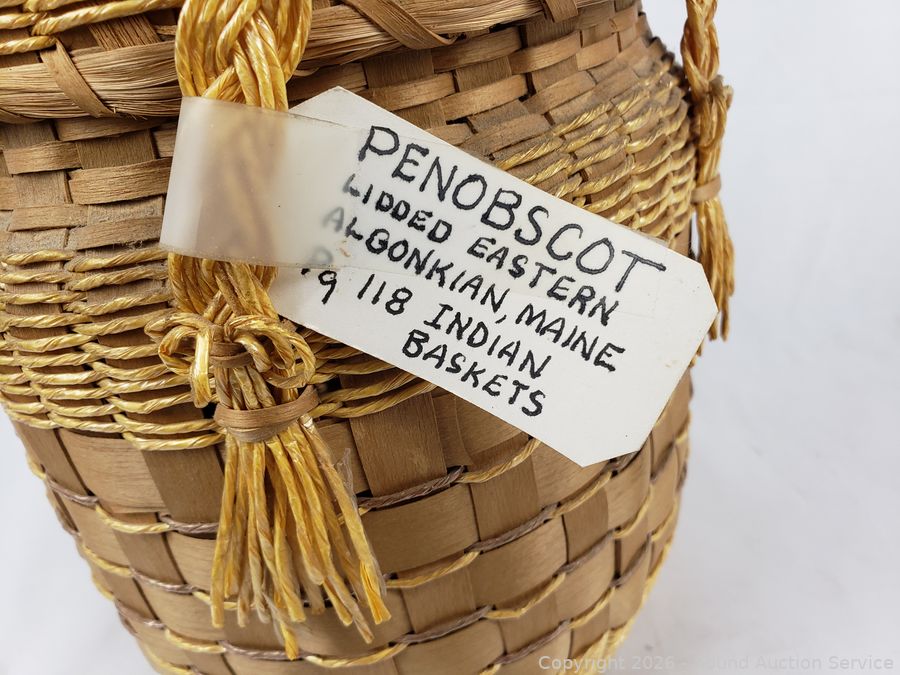 PENOBSCOT
LIDDED EASTERN
ALGONKIAN, MAINE
P 118 INDIAN
19
BASKETS
Copyright 2026 - ound Auction Service